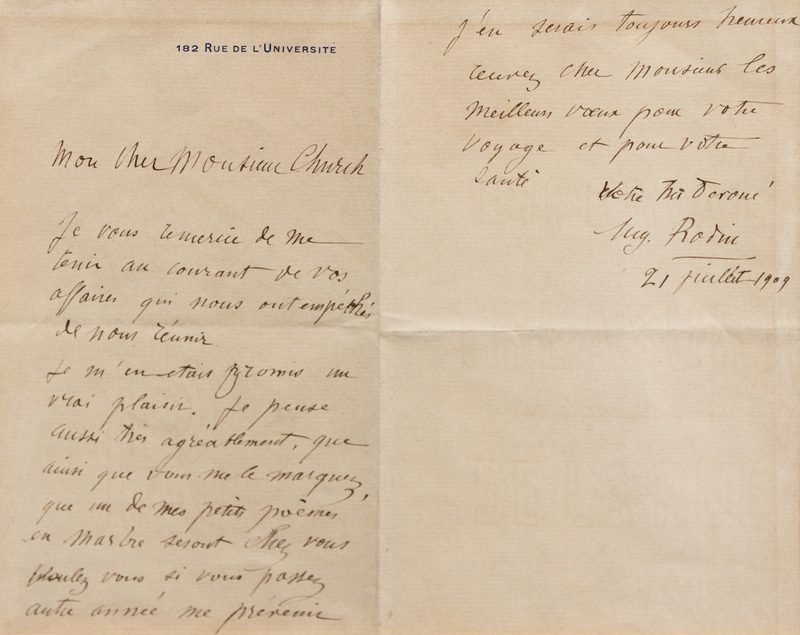 182 RUE DE L'UNIVERSITÉ
Mon cher Monsieur Church
Je vous remercie de me
tenir au courant de vos
affaires qui nous ont empêchés
de nous réunir.
Je m'en etais promis un
vrai plaisir. Je pense
aussi très agréablement, que
ainsi que vous me le marquez,
que un de mes petits poëmes
en marbre seront chez vous
voulez vous si vous passez
autre année me prévenir
J'en serais toujours heureux
recevez cher Monsieur les
meilleurs vœux pour votre
voyage et pour votre
santé
Votre très devoué
Aug. Rodin
21 juillet 1909